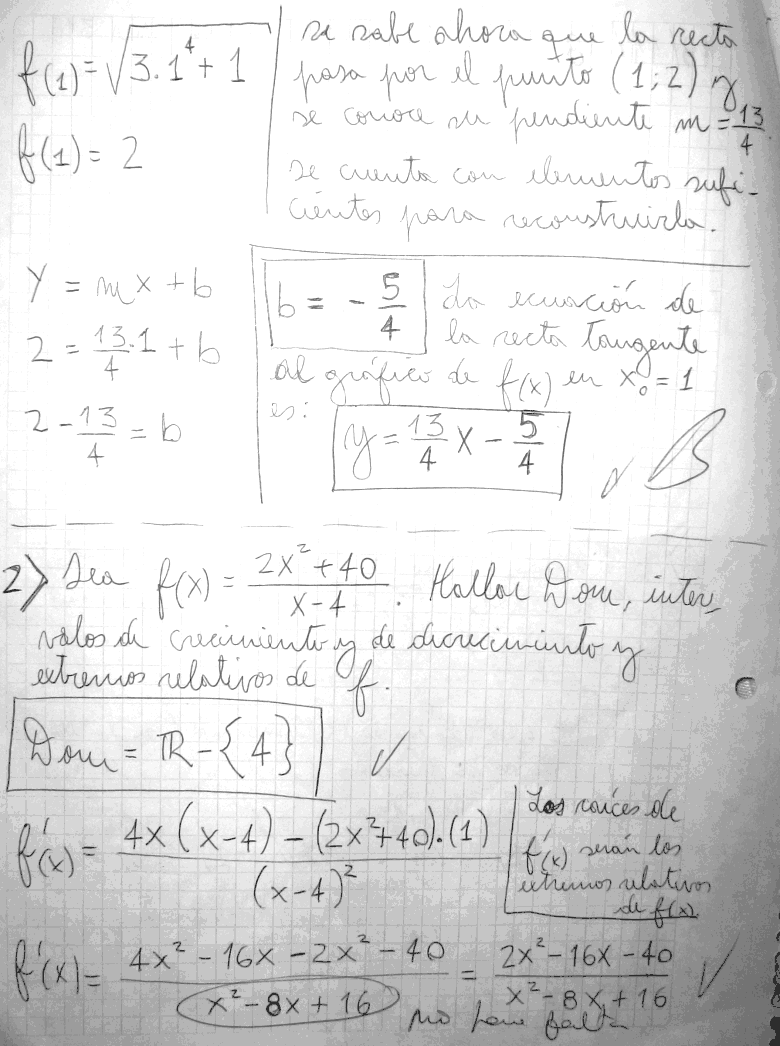 f(1) = √(3.1⁴ + 1)
f(1) = 2
se sabe ahora que la recta
pasa por el punto (1;2) y
se conoce su pendiente m = 13/4
se cuenta con elementos sufi-
cientes para reconstruirla.
y = mx + b
2 = 13/4 . 1 + b
2 - 13/4 = b
b = - 5/4
La ecuación de
la recta tangente
al gráfico de f(x) en x₀ = 1
es:
y = 13/4 x - 5/4
✓ B
2> Sea f(x) = (2x² + 40)/(x - 4) . Hallar Dom, inter,
valos de crecimiento y de decrecimiento y
extremos relativos de f.
Dom = ℝ - {4} ✓
f'(x) = (4x (x-4) - (2x²+40).(1))/(x-4)²
Las raíces de
f'(x) serán los
extremos relativos
de f(x)
f'(x) = (4x² - 16x - 2x² - 40)/(x² - 8x + 16) = (2x² - 16x - 40)/(x² - 8x + 16) ✓
no hace falta